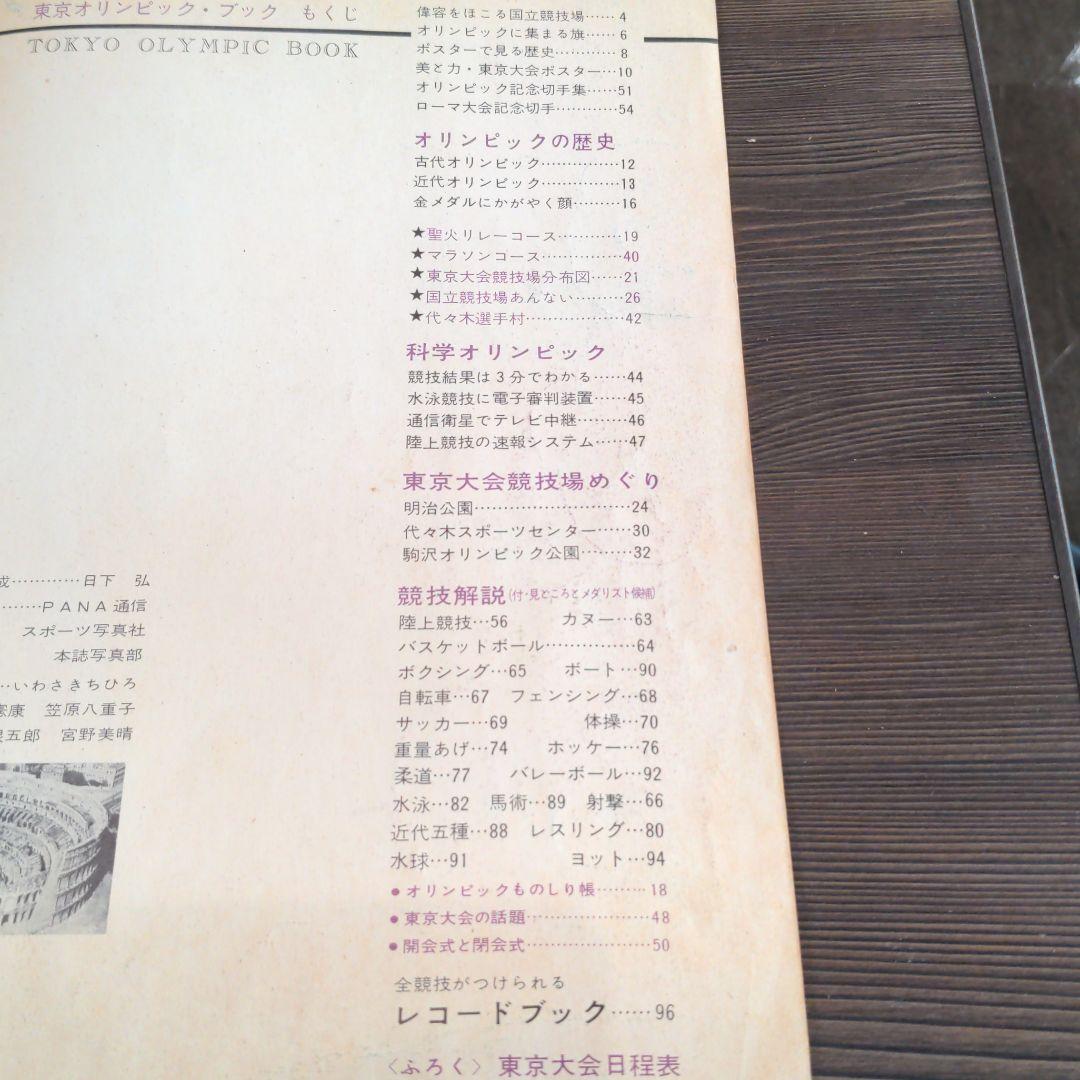 東京オリンピック・ブック もくじ
TOKYO OLYMPIC BOOK
偉容をほこる国立競技場……4
オリンピックに集まる旗……6
ポスターで見る歴史…………8
美と力・東京大会ポスター…10
オリンピック記念切手集……51
ローマ大会記念切手…………54
オリンピックの歴史
古代オリンピック……………12
近代オリンピック……………13
金メダルにかがやく顔………16
★聖火リレーコース…………19
★マラソンコース……………40
★東京大会競技場分布図……21
★国立競技場あんない………26
★代々木選手村………………42
科学オリンピック
競技結果は3分でわかる……44
水泳競技に電子審判装置……45
通信衛星でテレビ中継………46
陸上競技の速報システム……47
東京大会競技場めぐり
明治公園………………………24
代々木スポーツセンター……30
駒沢オリンピック公園………32
競技解説(付・見どころとメダリスト候補)
陸上競技…56 カヌー…63
バスケットボール……………64
ボクシング…65 ボート…90
自転車…67 フェンシング…68
サッカー…69 体操…70
重量あげ…74 ホッケー…76
柔道…77 バレーボール…92
水泳…82 馬術…89 射撃…66
近代五種…88 レスリング…80
水球…91 ヨット…94
●オリンピックものしり帳………18
●東京大会の話題…………………48
●開会式と閉会式…………………50
全競技がつけられる
レコードブック……96
〈ふろく〉東京大会日程表
成…………日下 弘
………PANA通信
スポーツ写真社
本誌写真部
…いわさきちひろ
康 笠原八重子
五郎 宮野美晴